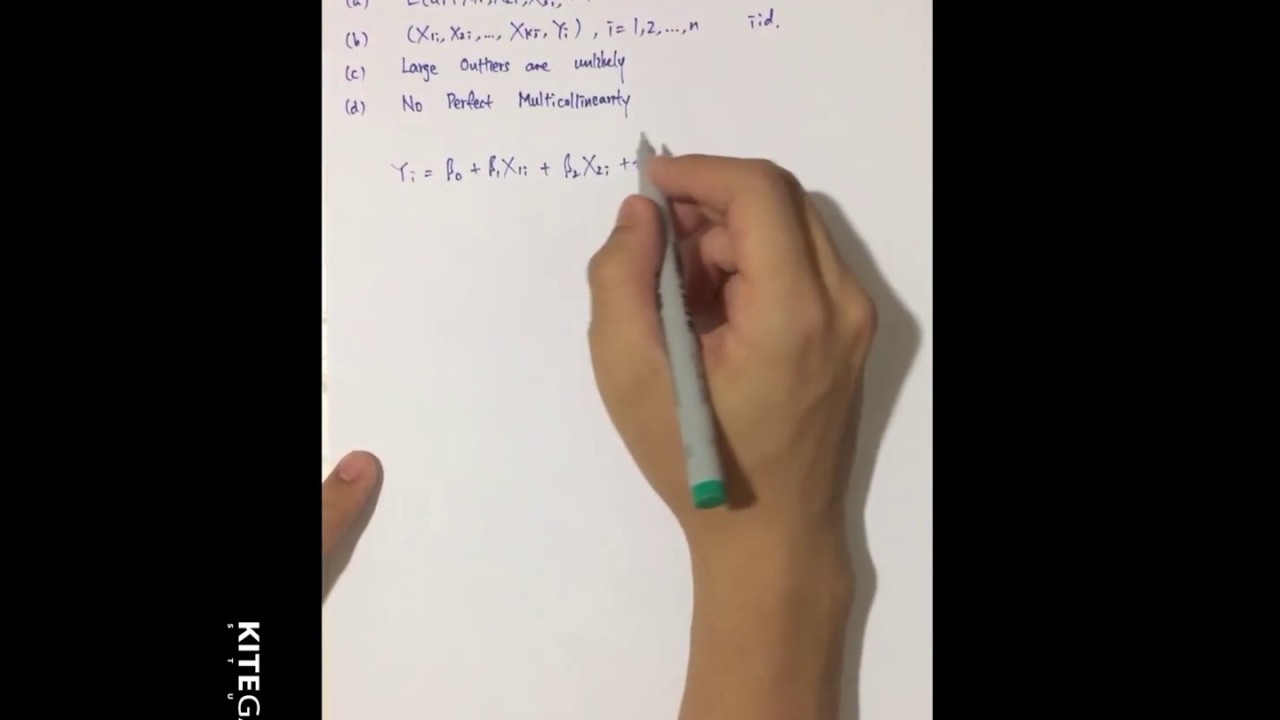 (a)
(b) (X₁ᵢ, X₂ᵢ, ..., Xₖᵢ, Yᵢ), i=1,2,...,n iid.
(c) Large Outliers are unlikely
(d) No Perfect Multicollinearity
Yᵢ = β₀ + β₁X₁ᵢ + β₂X₂ᵢ +
KITEGA
S T U